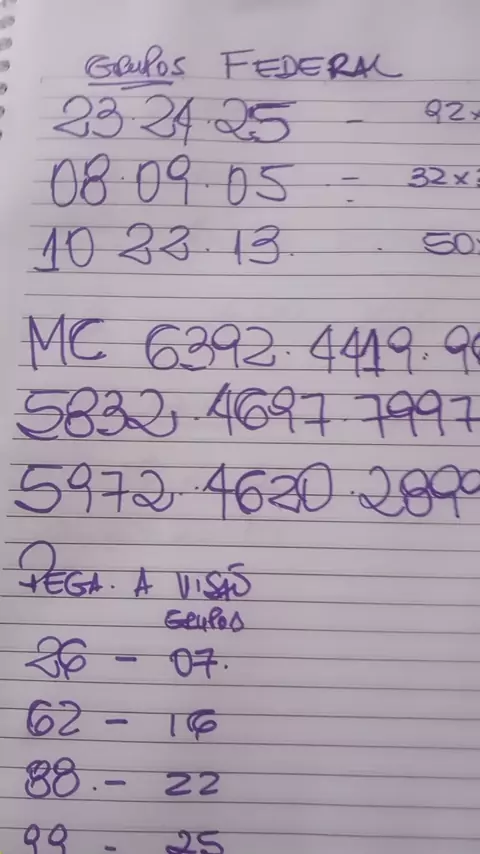 GRUPOS FEDERAL
23.24.25 - 92x
08.09.05 - 32x
10 22.13. . 50
MC 6392.4419.9
5832.4697.7997
5972.4620.2899
PEGA. A VISÃO
GRUPOS
26 - 07.
62 - 16
88.- 22
99 - 25